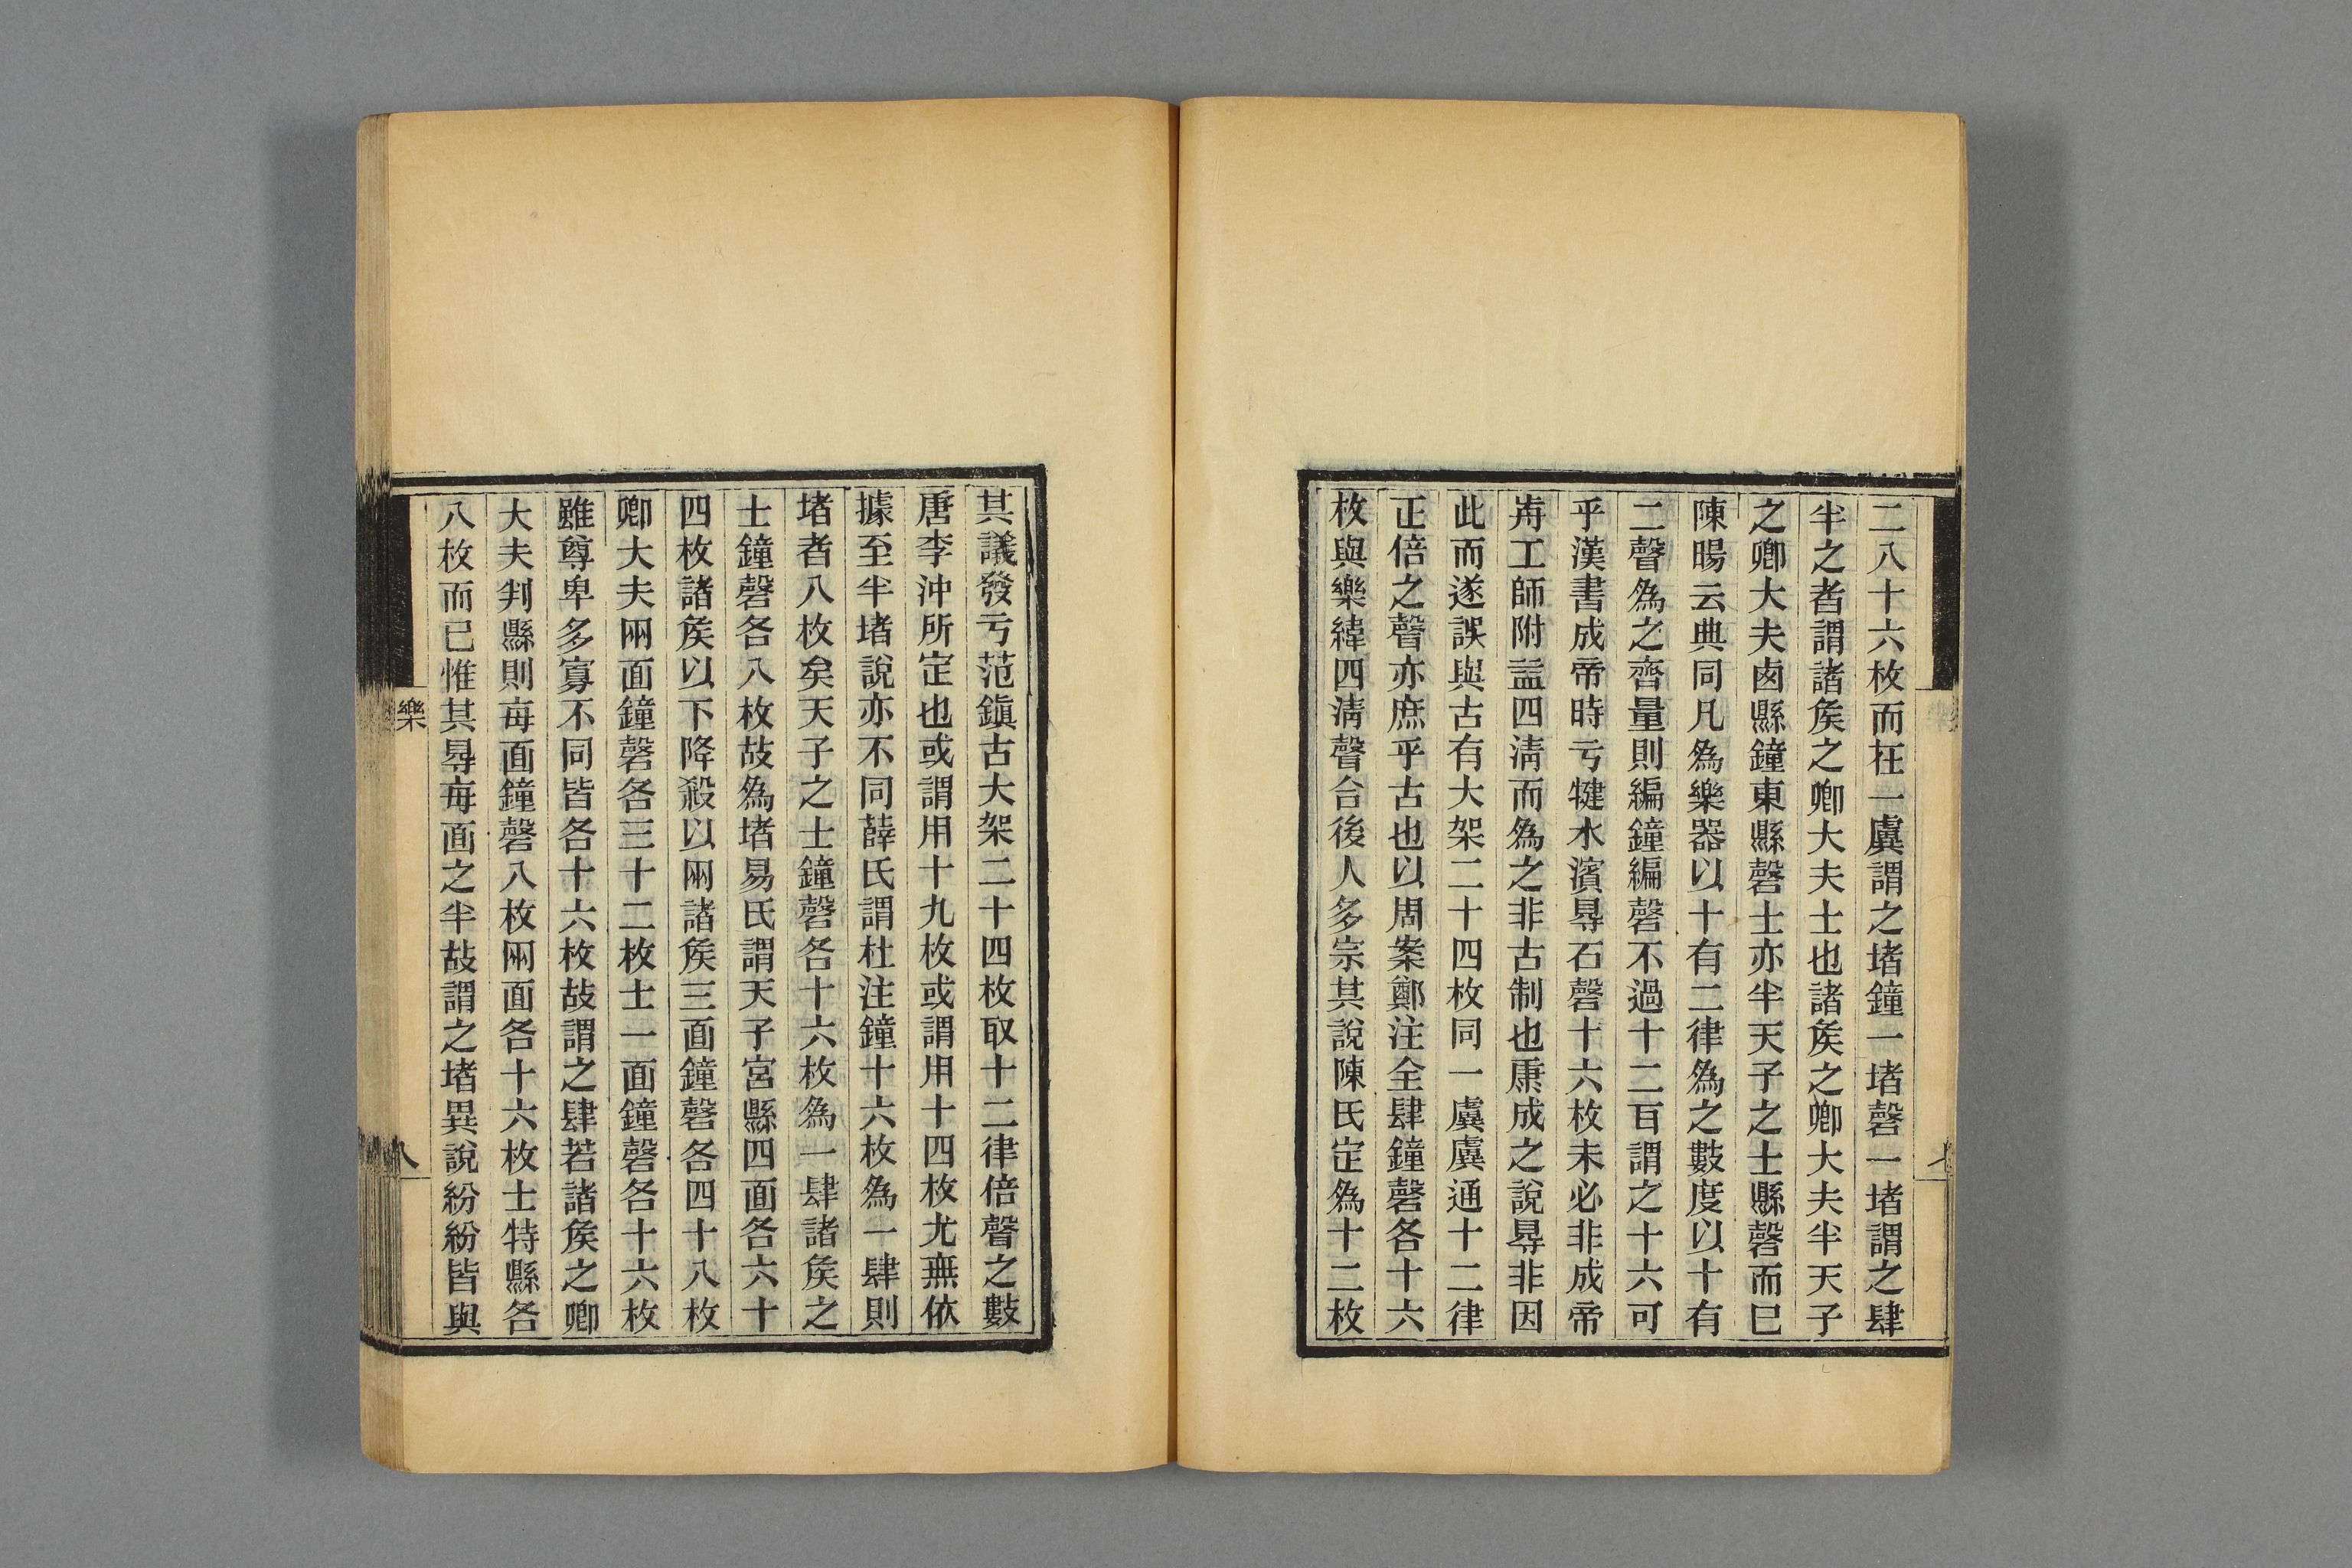 二八十六枚而在一虡謂之堵鐘一堵磬一堵謂之肆
半之者謂諸矦之卿大夫士也諸矦之卿大夫半天子
之卿大夫鹵縣鐘東縣磬士亦半天子之士縣磬而已
陳暘云典同凡爲樂器以十有二律爲之數度以十有
二聲爲之齊量則編鐘編磬不過十二百謂之十六可
乎漢書成帝時亏犍水濱㝵石磬十六枚未必非成帝
歬工師附益四淸而爲之非古制也康成之說㝵非因
此而遂誤與古有大架二十四枚同一虡虡通十二律
正倍之聲亦庶乎古也以周案鄭注全肆鐘磬各十六
枚與樂緯四淸聲合後人多宗其說陳氏定爲十二枚
其議發亏范鎭古大架二十四枚取十二律倍聲之數
唐李沖所定也或謂用十九枚或謂用十四枚尤無依
據至半堵說亦不同薛氏謂杜注鐘十六枚爲一肆則
堵者八枚矣天子之士鐘磬各十六枚爲一肆諸矦之
士鐘磬各八枚故爲堵易氏謂天子宮縣四面各六十
四枚諸矦以下降殺以兩諸矦三面鐘磬各四十八枚
卿大夫兩面鐘磬各三十二枚士一面鐘磬各十六枚
雖尊卑多寡不同皆各十六枚故謂之肆若諸矦之卿
大夫判縣則每面鐘磬八枚兩面各十六枚士特縣各
八枚而已惟其㝵每面之半故謂之堵異說紛紛皆與
樂
八